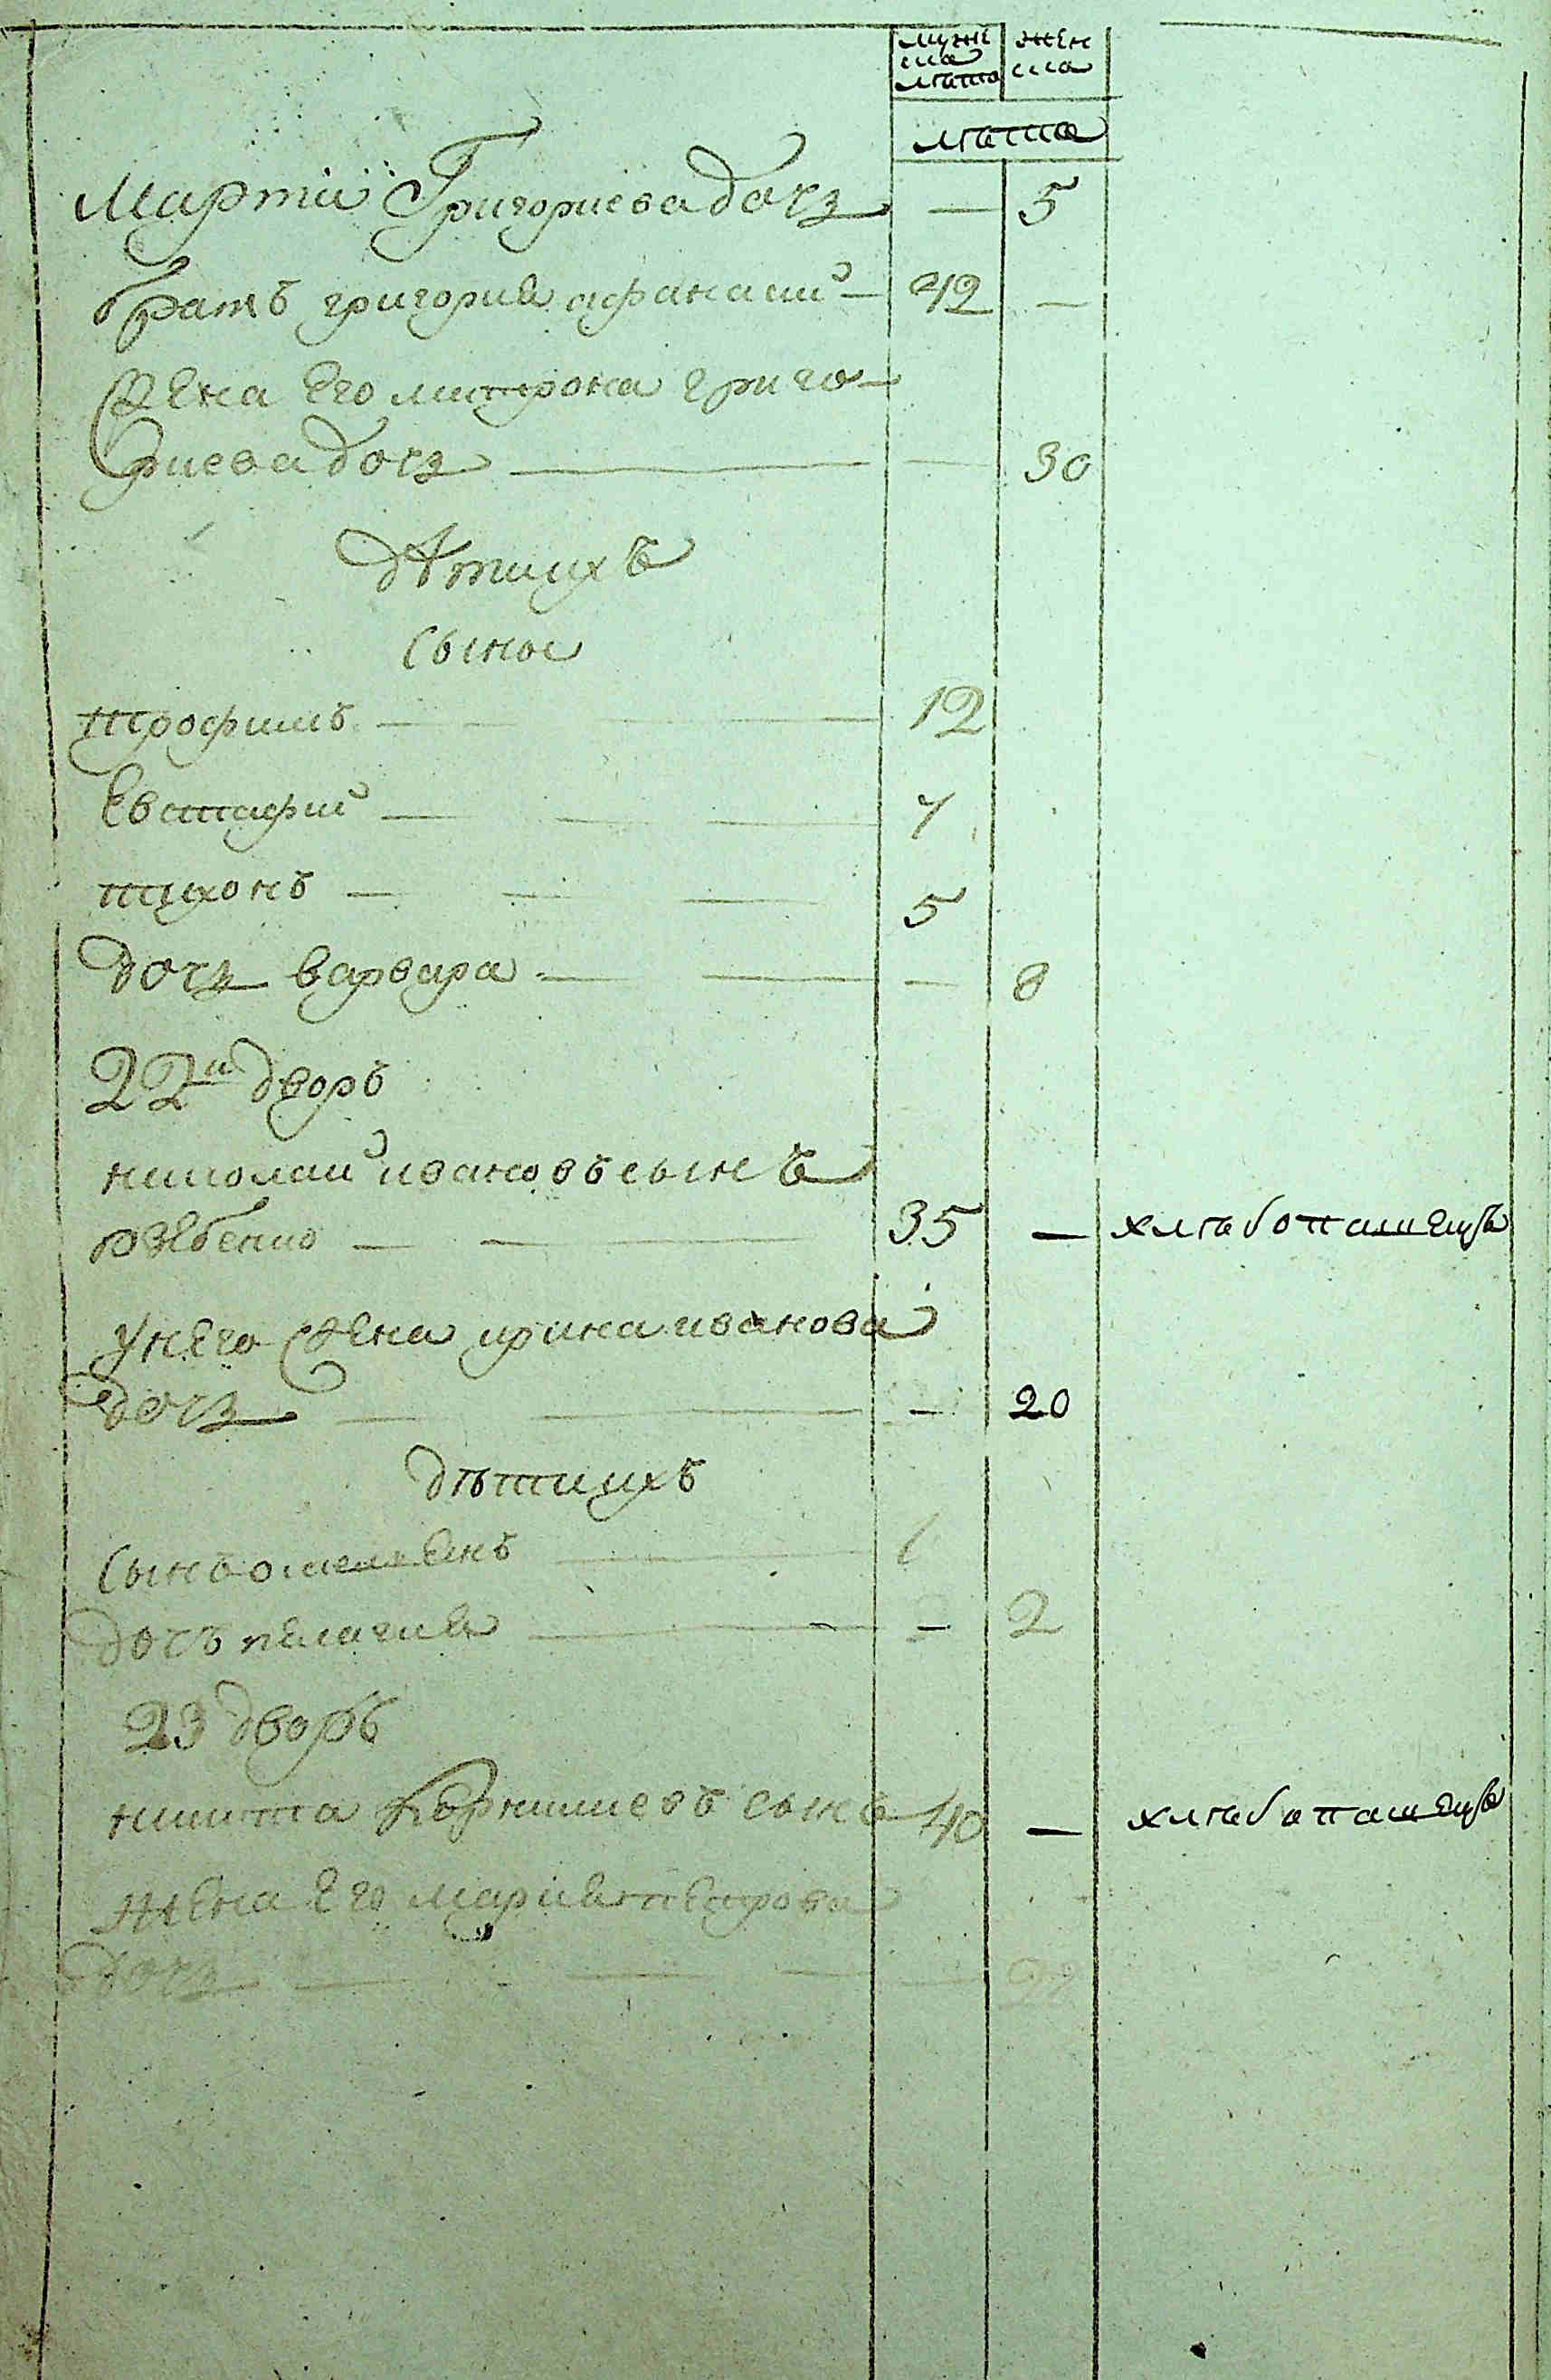 мужеска лета
женска
лета
Марти Григориева дочь — 5
братъ григория афанасий — 42 —
Жена Его митрона григо-
риева дочь — — 30
дѣти ихъ
Сыны
трофимъ — 12
Евстафий — 7
тихонъ — 5
дочь варвара — — 8
22й дворъ
николай ивановъ сынъ
35 — хлѣбопашецъ
у него Жена ирина иванова
дочь — — 20
дѣти ихъ
Сынъ омельЕнъ — 1
дочъ пелагия — — 2
23 дворъ
никита Корниевъ сынъ 40 — хлѣбопашецъ
жена Его мария петрова
дочь — —